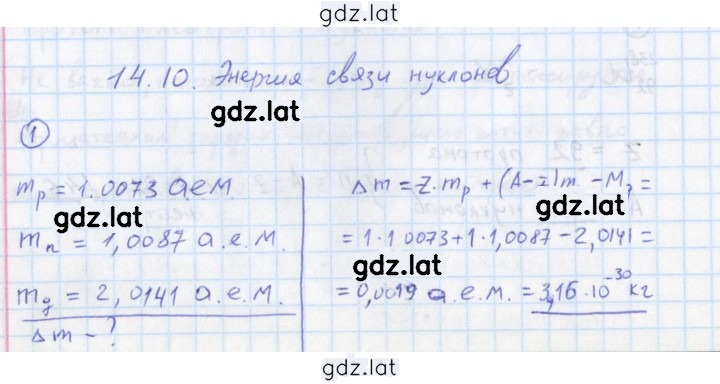 gdz.lat
14.10. Энергия связи нуклонов
gdz.lat
1
mp = 1.0073 а.е.м.
gdz.lat
mn = 1,0087 а.е.м.
mд = 2,0141 а.е.м.
Δm - ?
Δm = Z·mp + (A-Z)m - Mя =
gdz.lat
= 1·1 0073+1·1,0087-2,0141 =
gdz.lat
= 0,0019 а.е.м. = 3,16·10⁻³⁰ кг
gdz.lat